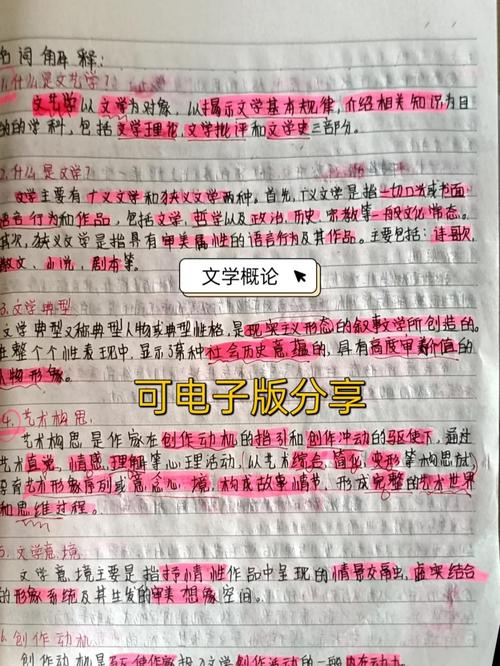 名词解释:
1.什么是文艺学?
文艺学以文学为对象,以揭示文学基本规律,介绍相关知识为目
的的学科,包括文学理论,文学批评和文学史三部分。
2.什么是文学?
文学主要有广义文学和狭义文学两种。首先,广义文学是指一切口头或书面
语言行为和作品,包括文学,哲学以及政治,历史,宗教等一般文化常态。
其次,狭义文学是指具有审美属性的语言行为及其作品。主要包括:诗歌,
散文、小说,剧本等。
文学概论
3.文学典型
文学典型又称典型人物或典型性格,是现实主义形态的叙事文学所创造的。
在整个个性表现中,显示了某种社会历史意蕴的,具有高度审美价值的
人物形象。
可电子版分享
4.艺术构思.
艺术构思是作家在创作动机的指引和创作冲动的驱使下,通过
艺术直觉,情感,理解等心理活动,以艺术综合,简化,变形等构思放
孕育艺术形象序列或意念心境,构成故事情节,形成完整的艺术世界
和思维过程。
5.文学意境
文学意境主要是指抒情性作品中呈现的情景交融,虚实结合
的形象系统及其生发的审美想象空间。
6.创作动机
创作动机是 使作家投入文学创作活动的一般内在动力